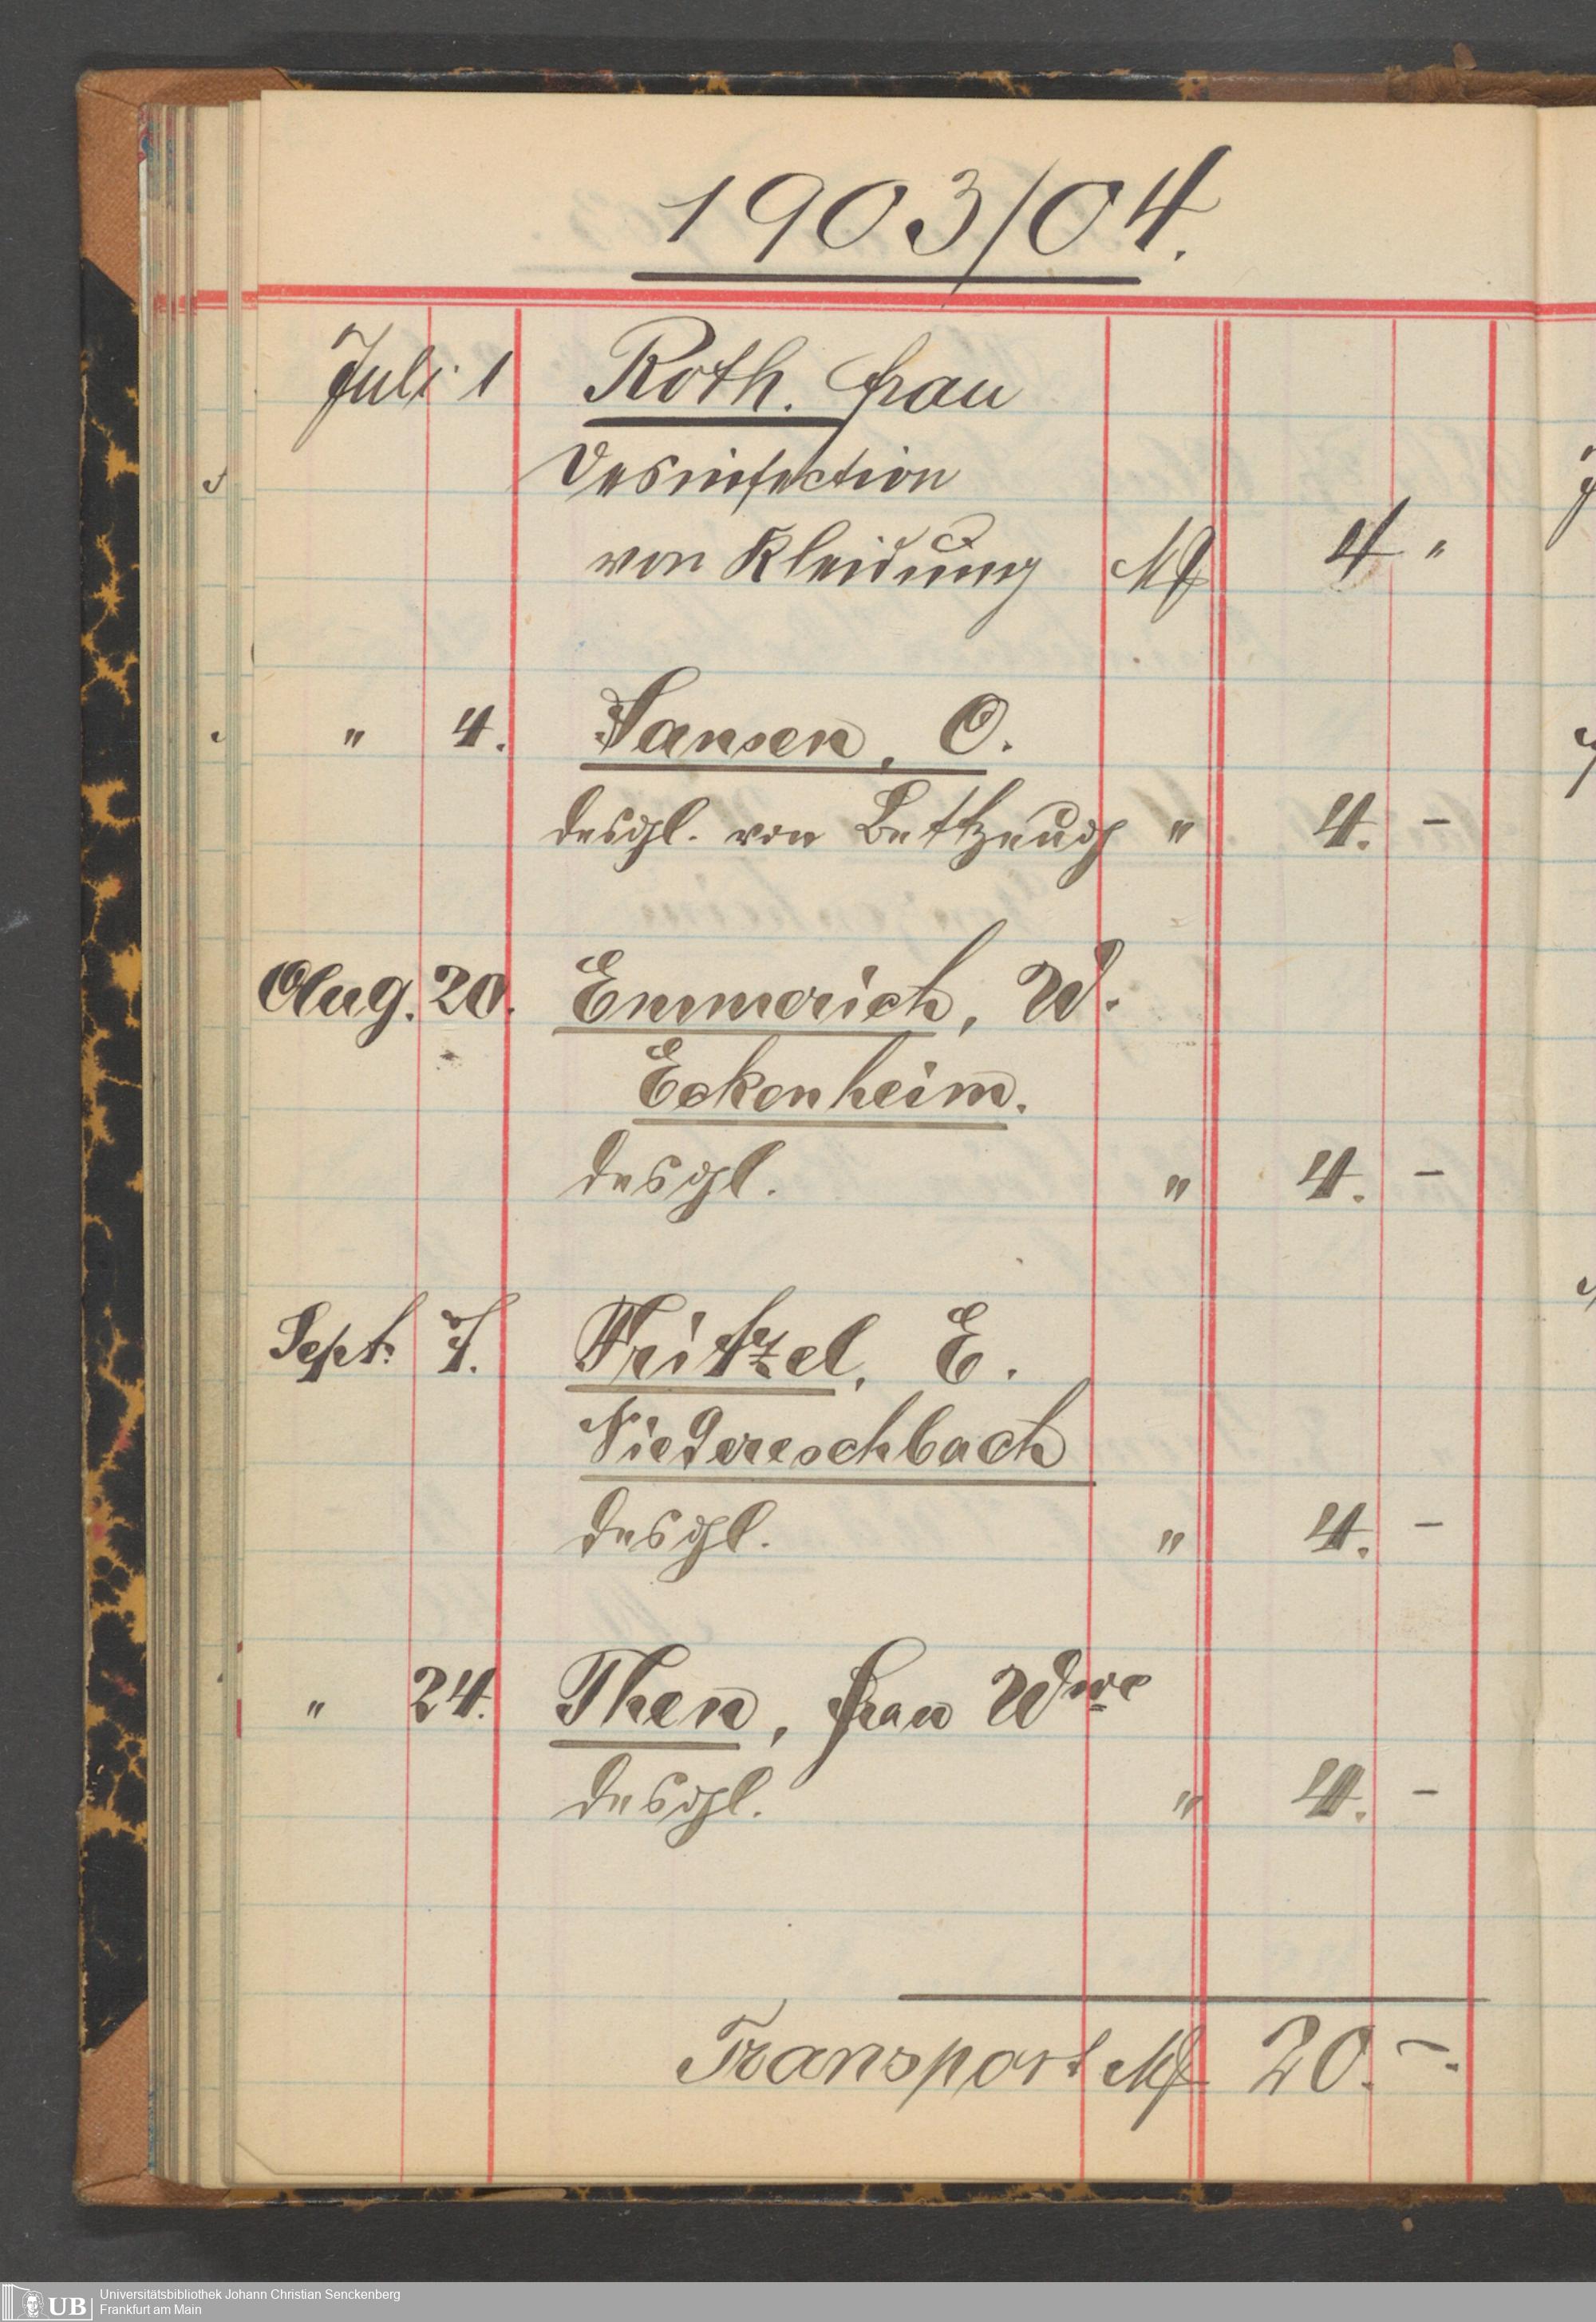 1903/04.
Juli 1 Roth. Frau
Desinfection
von Kleidung M 4 "
" 4. Jansen, O.
desgl. von Bettzeug " 4. –
Aug. 20. Emmerich, W.
Eckenheim.
desgl. " 4. –
Sept. 7. Fritzel, E.
Niedereschbach
desgl. " 4. –
" 24. Then, Frau Wwe
desgl. " 4. –
Transport M 20. –.
UB Universitätsbibliothek Johann Christian Senckenberg
Frankfurt am Main